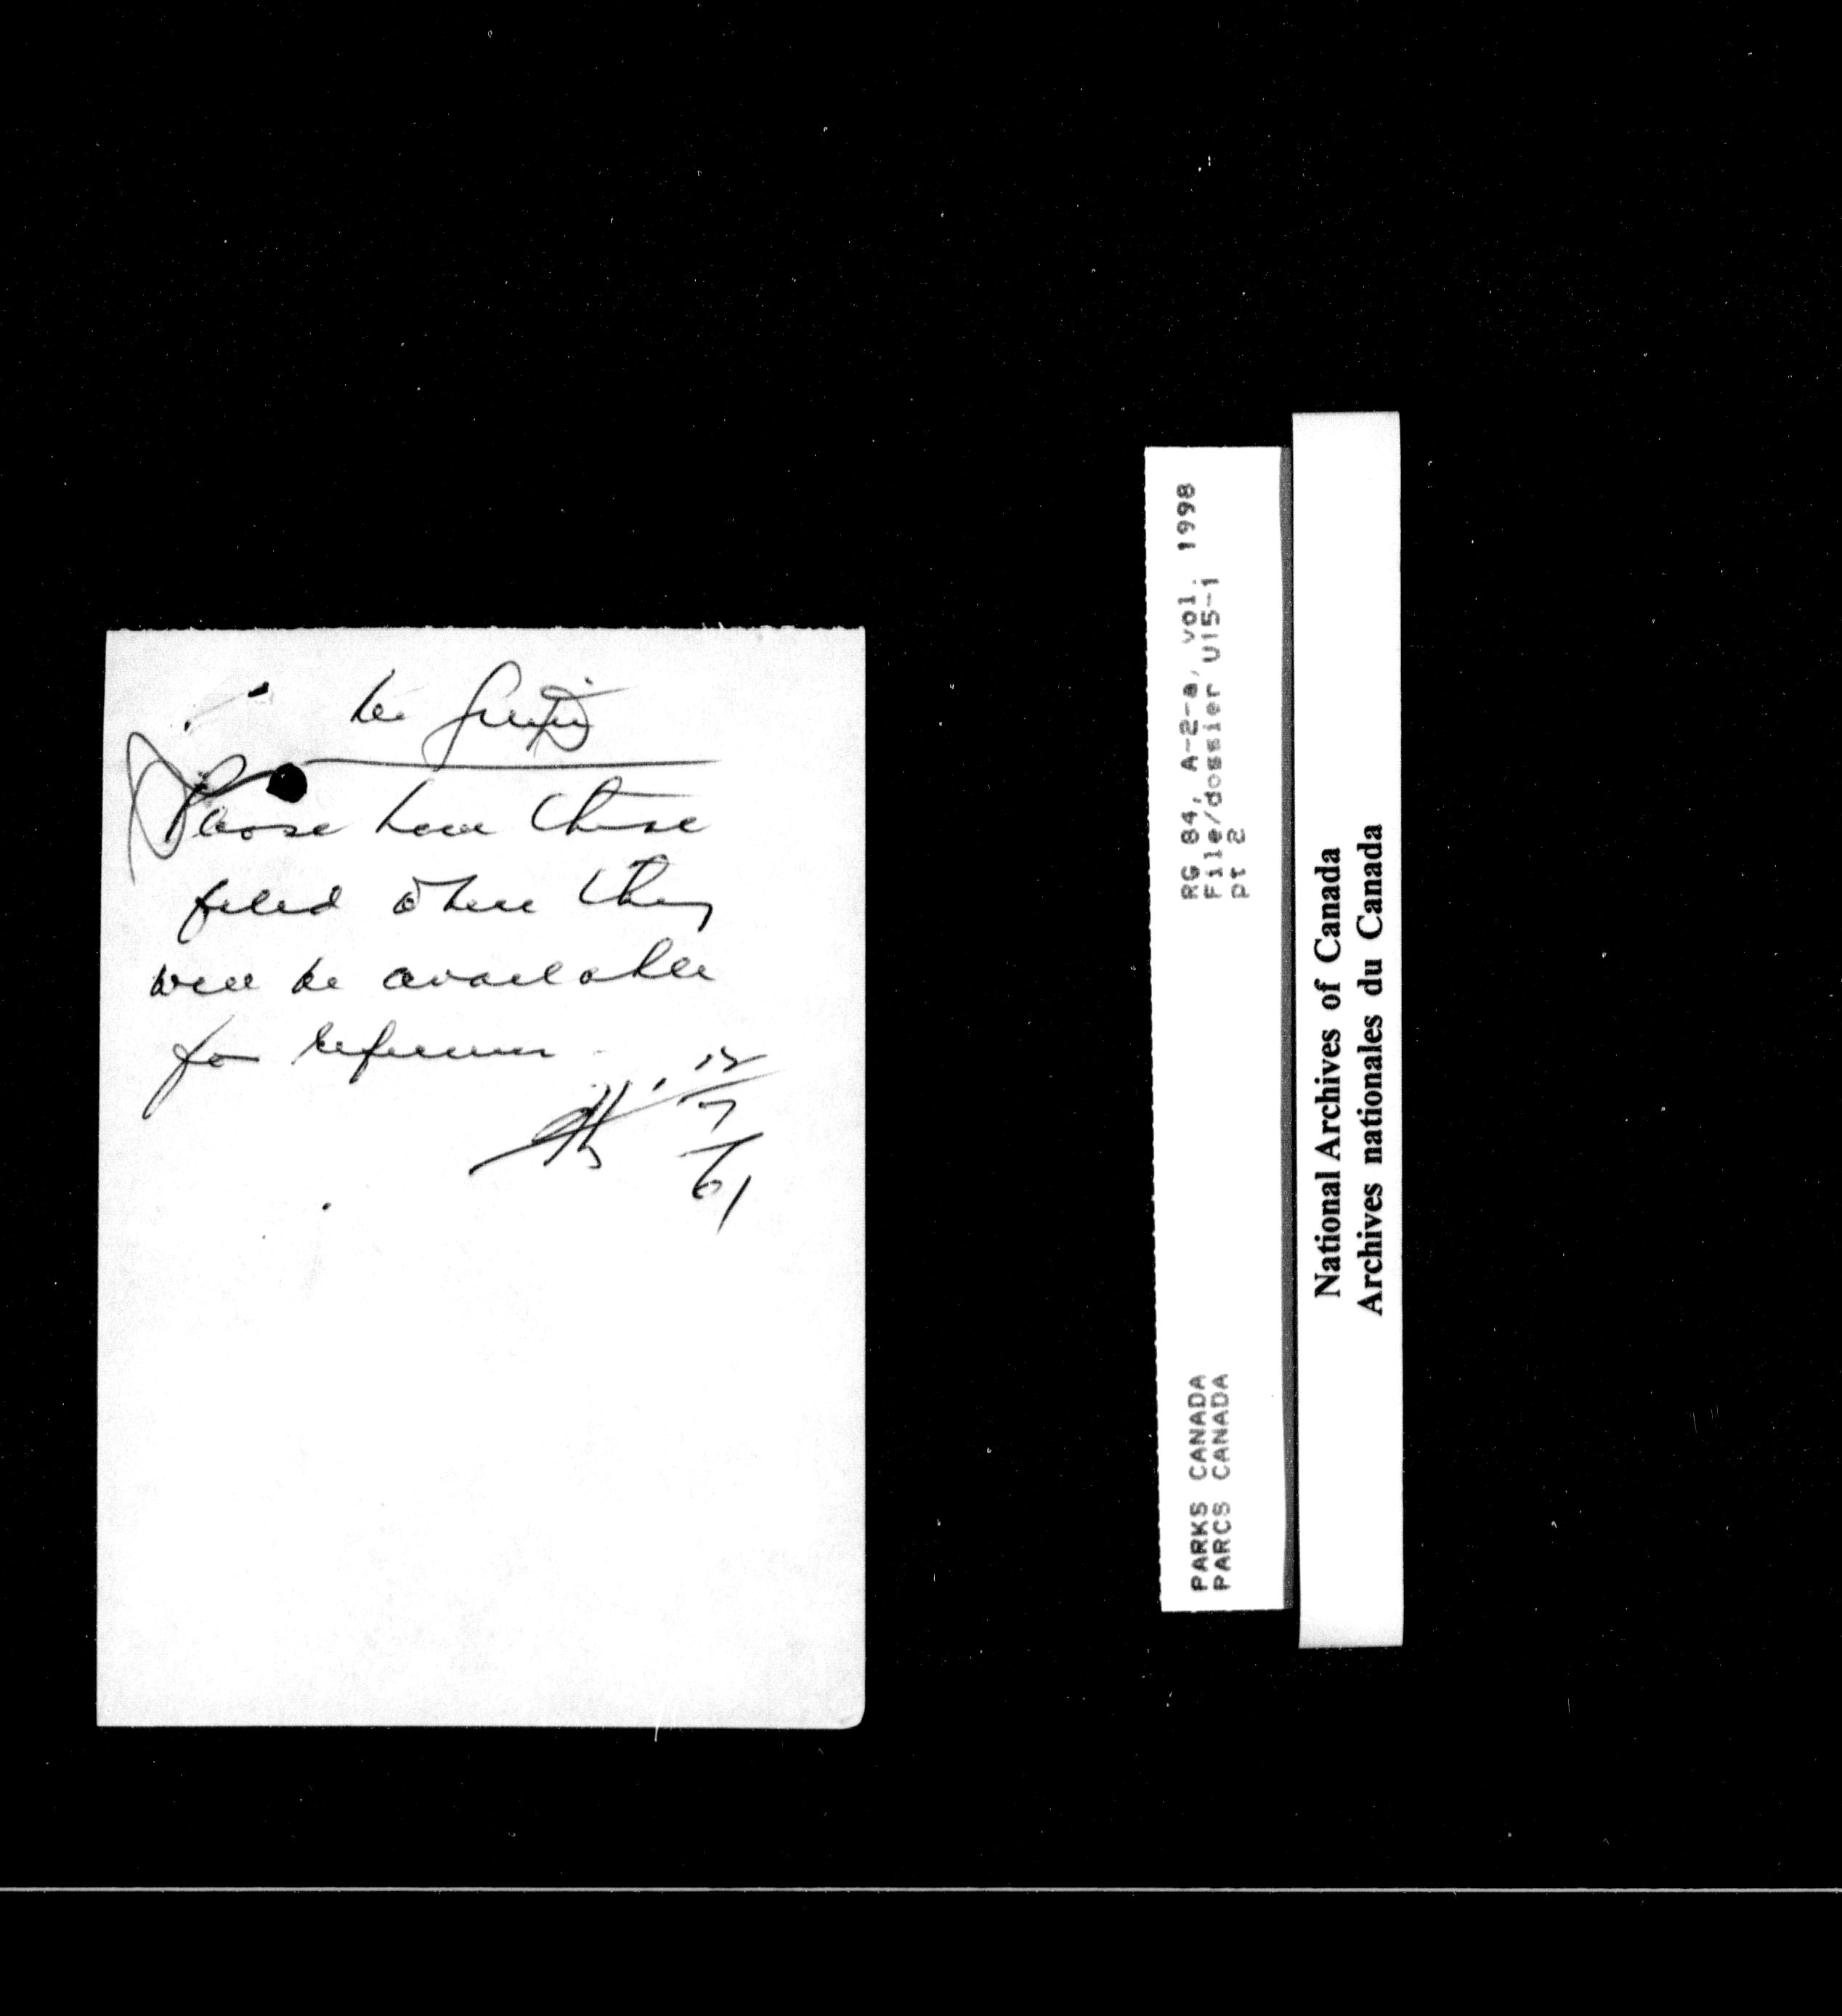 Please have these
filed where they
will be available
for reference.
12
7
61
RG 84, A-2-a, vol. 1998
File/dossier U15-1
pt 2
PARKS CANADA
PARCS CANADA
National Archives of Canada
Archives nationales du Canada